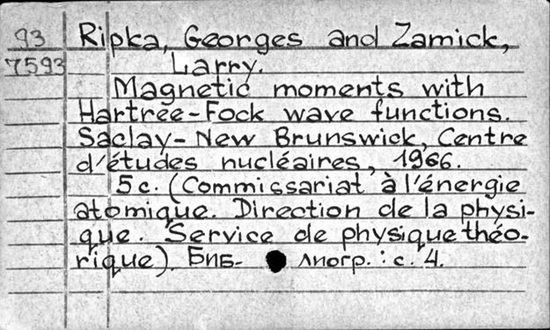 93 Ripka, Georges and Zamick,
7593 Larry.
Magnetic moments with
Hartree-Fock wave functions.
Saclay-New Brunswick, Centre
d'études nucléaires, 1966.
5 c. (Commissariat à l'énergie
atomique. Direction de la physi-
que. Service de physique théo-
rique). Биб- лиогр.: с. 4.